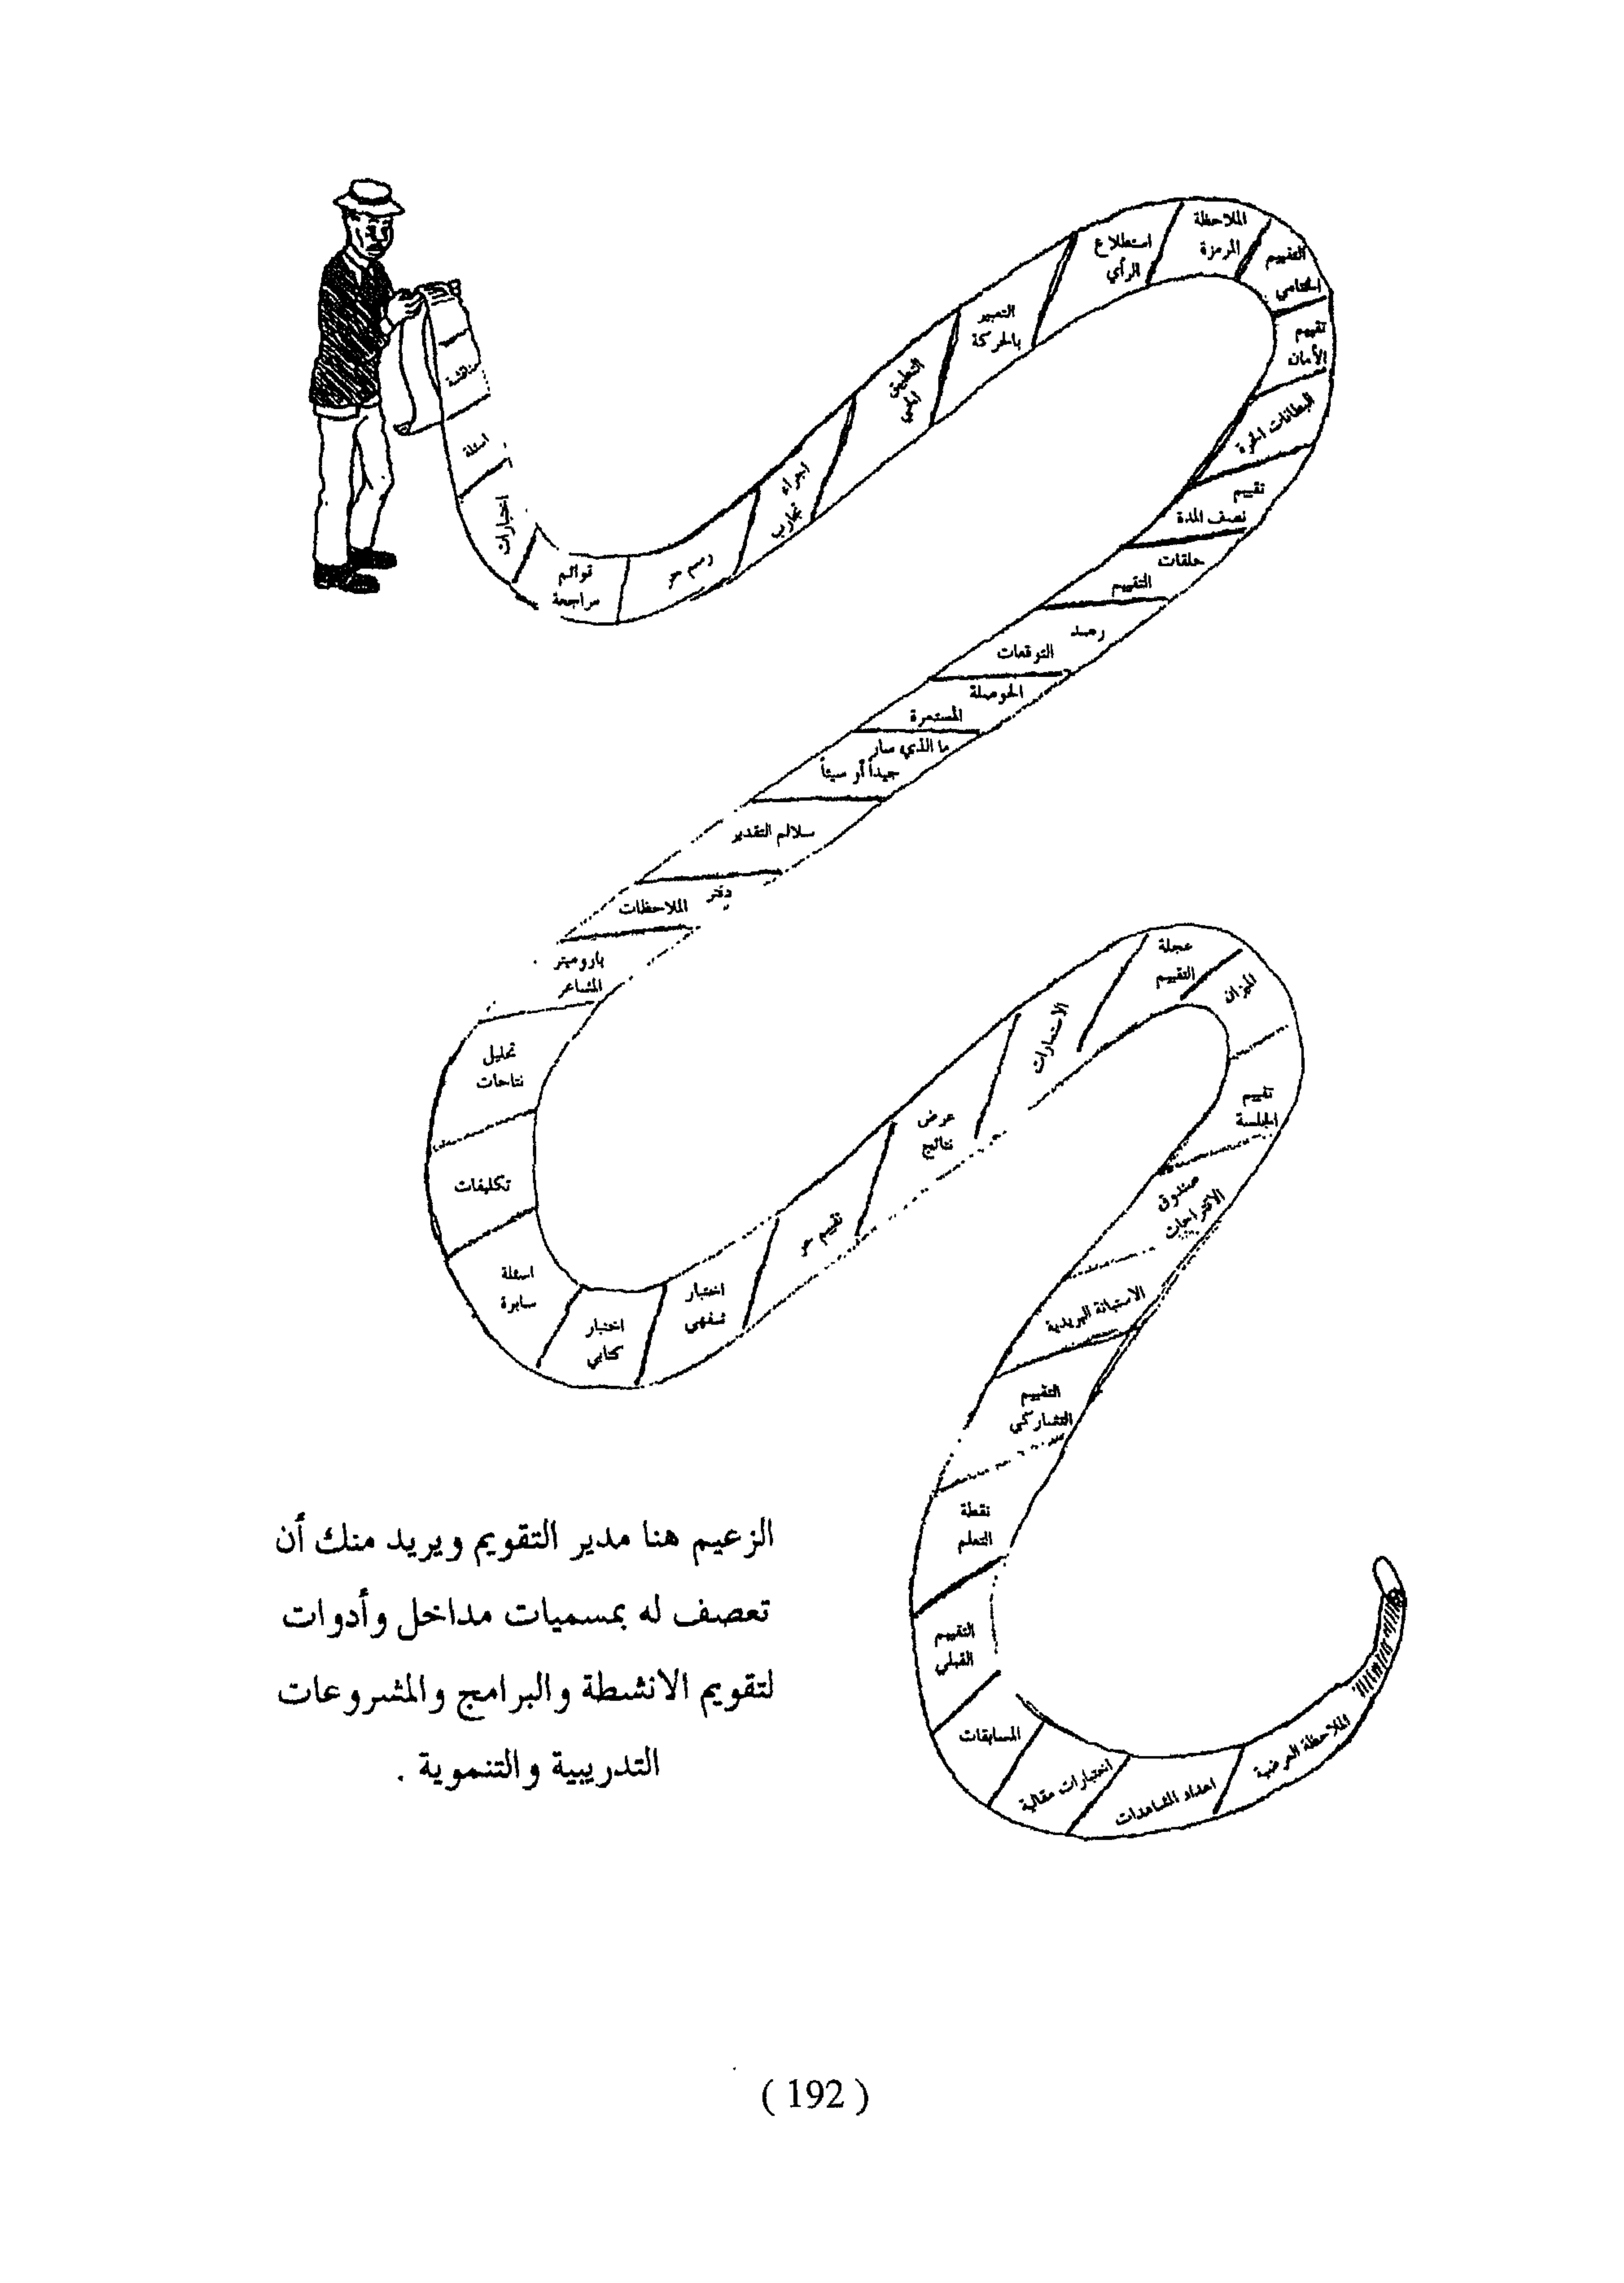 مناقشة
اسئلة
اختبارات
قوائم
مراجعة
رسم حر
اجراء
تجارب
التطبيق
الحي
التعبير
بالحركة
استطلاع
الرأي
الملاحظة
المرمزة
التقييم
الختامي
تقييم
الأمان
البطاقات الحرة
تقييم
نصف المدة
حلقات
التقييم
رصد
التوقعات
الحوصلة
المستمرة
ما الذي سار
جيداً أو سيئاً
سلالم التقدير
دفتر
الملاحظات
باروميتر
المشاعر
تحليل
نتاجات
تكليفات
اسئلة
سابرة
اختبار
كتابي
اختبار
شفهي
تقييم حر
عرض
نتائج
الاستمارات
عجلة
التقييم
الميزان
تقييم
الجلسة
صندوق
الاقتراحات
الاستبانة البريدية
التقييم
التشاركي
نقطة
التعلم
التقييم
القبلي
المسابقات
اختبارات مقالية
اعداد المشاهدات
الملاحظة العرضية
الزعيم هنا مدير التقويم ويريد منك أن
تعصف له بمسميات مداخل وأدوات
لتقويم الانشطة والبرامج والمشروعات
التدريبية والتنموية .
( 192 )